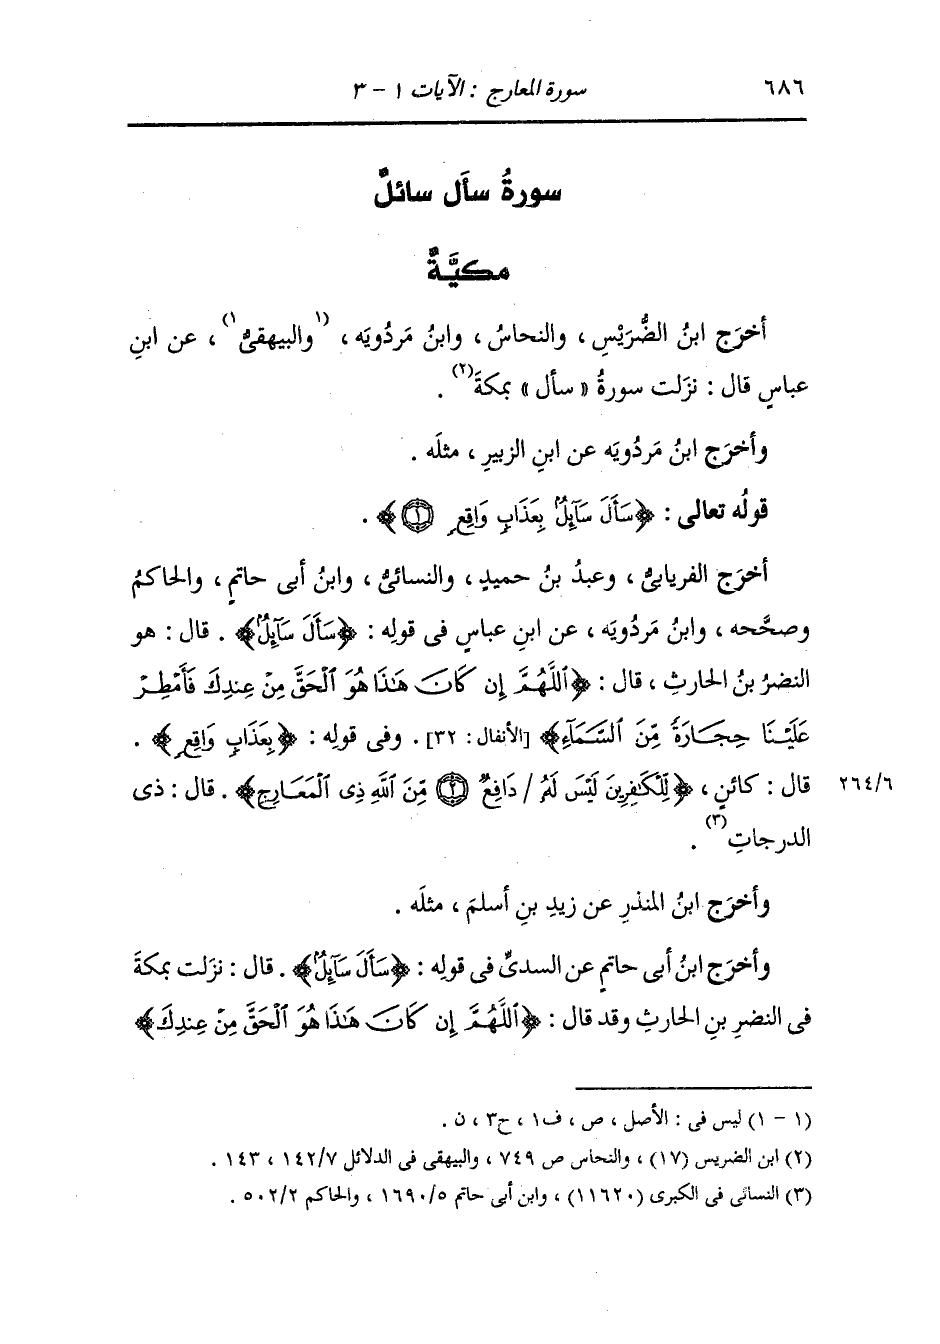 ٦٨٦
سورة المعارج : الآيات ١ - ٣
سورةُ سأَل سائلٌ
مكيَّةٌ
أخرَج ابنُ الضُّرَيْسِ ، والنحاسُ ، وابنُ مَردُويَه ، (١والبيهقىُّ١) ، عن ابنِ
عباسٍ قال : نزَلت سورةُ « سأل » بمكةَ(٢) .
وأخرَج ابنُ مَردُويَه عن ابنِ الزبيرِ ، مثلَه .
قولُه تعالى : ﴿سَأَلَ سَآئِلٌۢ بِعَذَابٍ وَاقِعٍ ١﴾ .
أخرَج الفريابىُّ ، وعبدُ بنُ حميدٍ ، والنسائىُّ ، وابنُ أبى حاتمٍ ، والحاكمُ
وصحَّحه ، وابنُ مَردُويَه ، عن ابنِ عباسٍ فى قولِه : ﴿سَأَلَ سَآئِلٌۢ﴾ . قال : هو
النضرُ بنُ الحارثِ ، قال : ﴿ٱللَّهُمَّ إِن كَانَ هَٰذَا هُوَ ٱلْحَقَّ مِنْ عِندِكَ فَأَمْطِرْ
عَلَيْنَا حِجَارَةً مِّنَ ٱلسَّمَآءِ﴾ [الأنفال : ٣٢] . وفى قولِه : ﴿بِعَذَابٍ وَاقِعٍ﴾ .
قال : كائنٍ ، ﴿لِّلْكَٰفِرِينَ لَيْسَ لَهُۥ / دَافِعٌ ٢ مِّنَ ٱللَّهِ ذِى ٱلْمَعَارِجِ﴾ . قال : ذى
٢٦٤/٦
الدرجاتِ(٣) .
وأخرَج ابنُ المنذرِ عن زيدِ بنِ أسلمَ ، مثلَه .
وأخرَج ابنُ أبى حاتمٍ عن السدىِّ فى قولِه : ﴿سَأَلَ سَآئِلٌۢ﴾ . قال : نزَلت بمكةَ
فى النضرِ بنِ الحارثِ وقد قال : ﴿ٱللَّهُمَّ إِن كَانَ هَٰذَا هُوَ ٱلْحَقَّ مِنْ عِندِكَ﴾
(١ - ١) ليس فى : الأصل ، ص ، ف١ ، ح٣ ، ن .
(٢) ابن الضريس (١٧) ، والنحاس ص ٧٤٩ ، والبيهقى فى الدلائل ١٤٢/٧ ، ١٤٣ .
(٣) النسائى فى الكبرى (١١٦٢٠) ، وابن أبى حاتم ١٦٩٠/٥ ، والحاكم ٥٠٢/٢ .